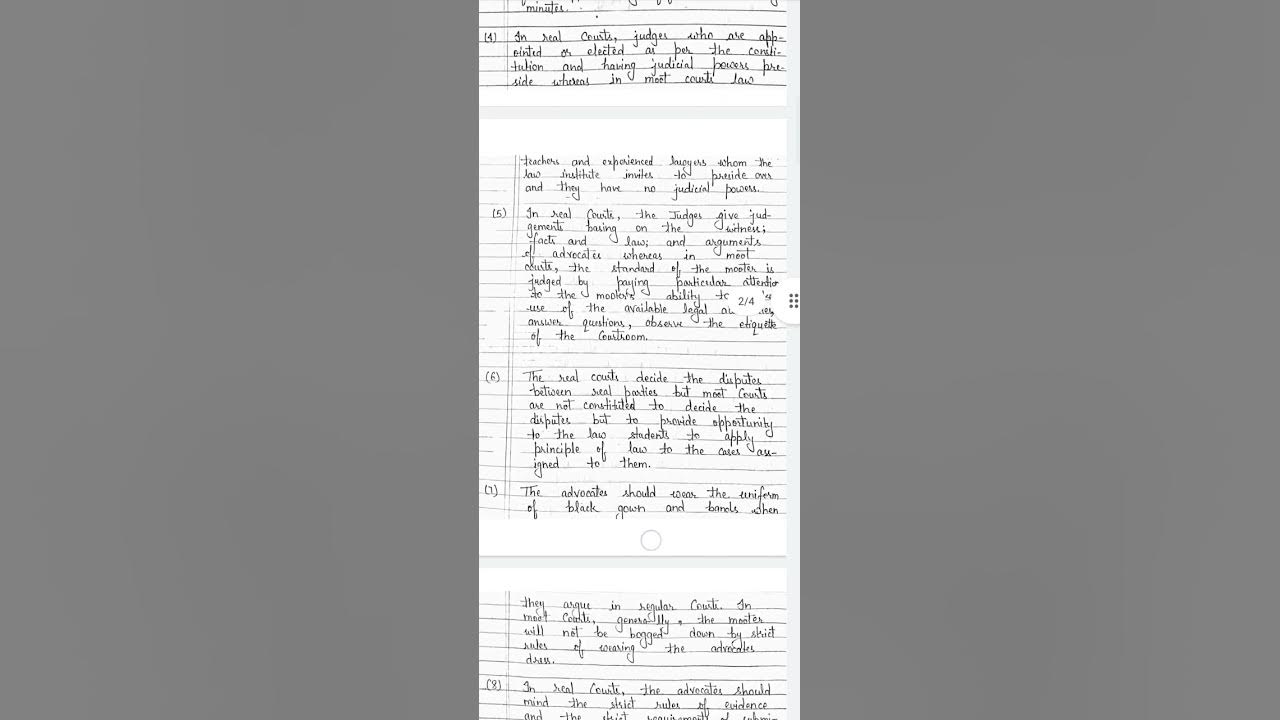 minutes.
(4) In real Courts, judges who are app-
ointed or elected as per the consti-
tution and having judicial powers pre-
side whereas in moot courts law
teachers and experienced lawyers whom the
law institute invites to preside over
and they have no judicial powers.
(5) In real Courts, the Judges give jud-
gements basing on the witness;
facts and law; and arguments
of advocates whereas in moot
courts, the standard of the mooter is
judged by paying particular attention
to the mooter's ability to
2/4
use of the available legal
answer questions, observe the etiquette
of the Courtroom.
(6) The real courts decide the disputes
between real parties but moot Courts
are not constituted to decide the
disputes but to provide opportunity
to the law students to apply
principle of law to the cases ass-
igned to them.
(7) The advocates should wear the uniform
of black gown and bands when
they argue in regular Courts. In
moot Courts, generally, the mooter
will not be bogged down by strict
rules of wearing the advocates
dress.
(8) In real Courts, the advocates should
mind the strict rules of evidence
and the strict requirements of